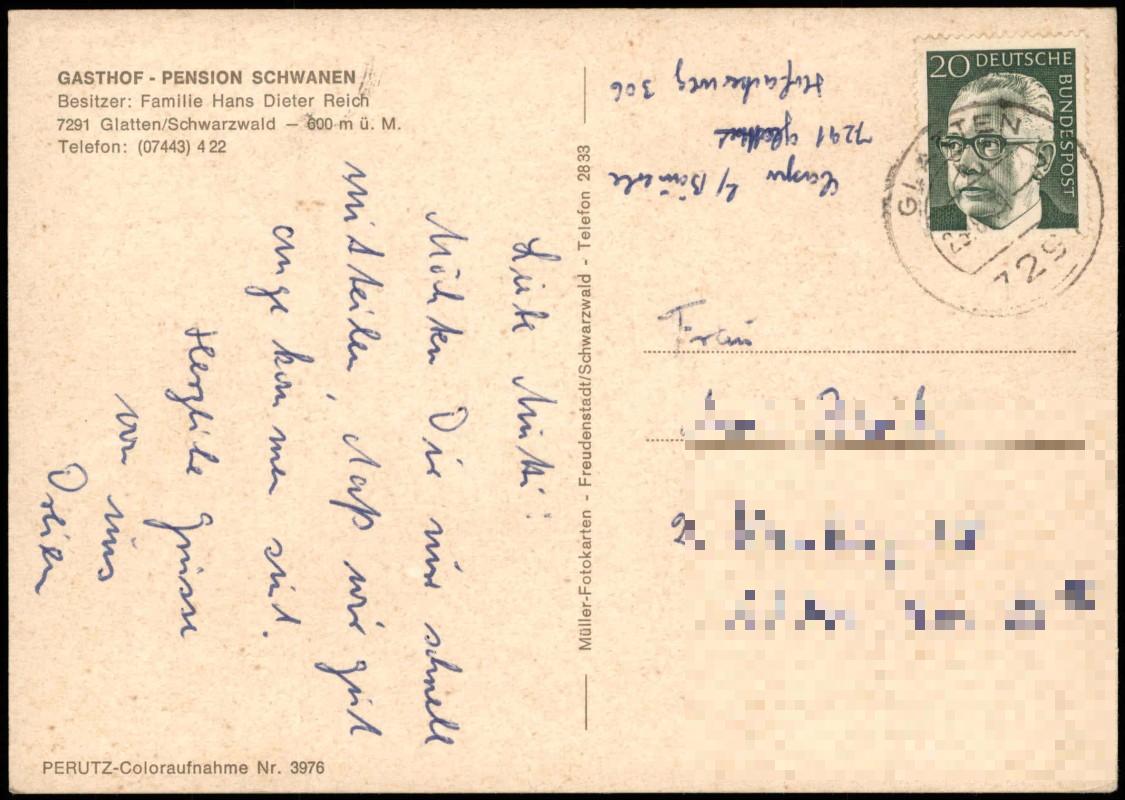 GASTHOF - PENSION SCHWANEN
Besitzer: Familie Hans Dieter Reich
7291 Glatten/Schwarzwald – 600 m ü. M.
Telefon: (07443) 4 22
Liebe Mutti!
Möchten Dir nur schnell
mitteilen, daß wir gut
angekommen sind.
Herzliche Grüsse
von uns
Dreien
PERUTZ-Coloraufnahme Nr. 3976
Müller-Fotokarten - Freudenstadt/Schwarzwald - Telefon 2833
7291
306
20 DEUTSCHE
BUNDESPOST
GLATTEN
729
Frau